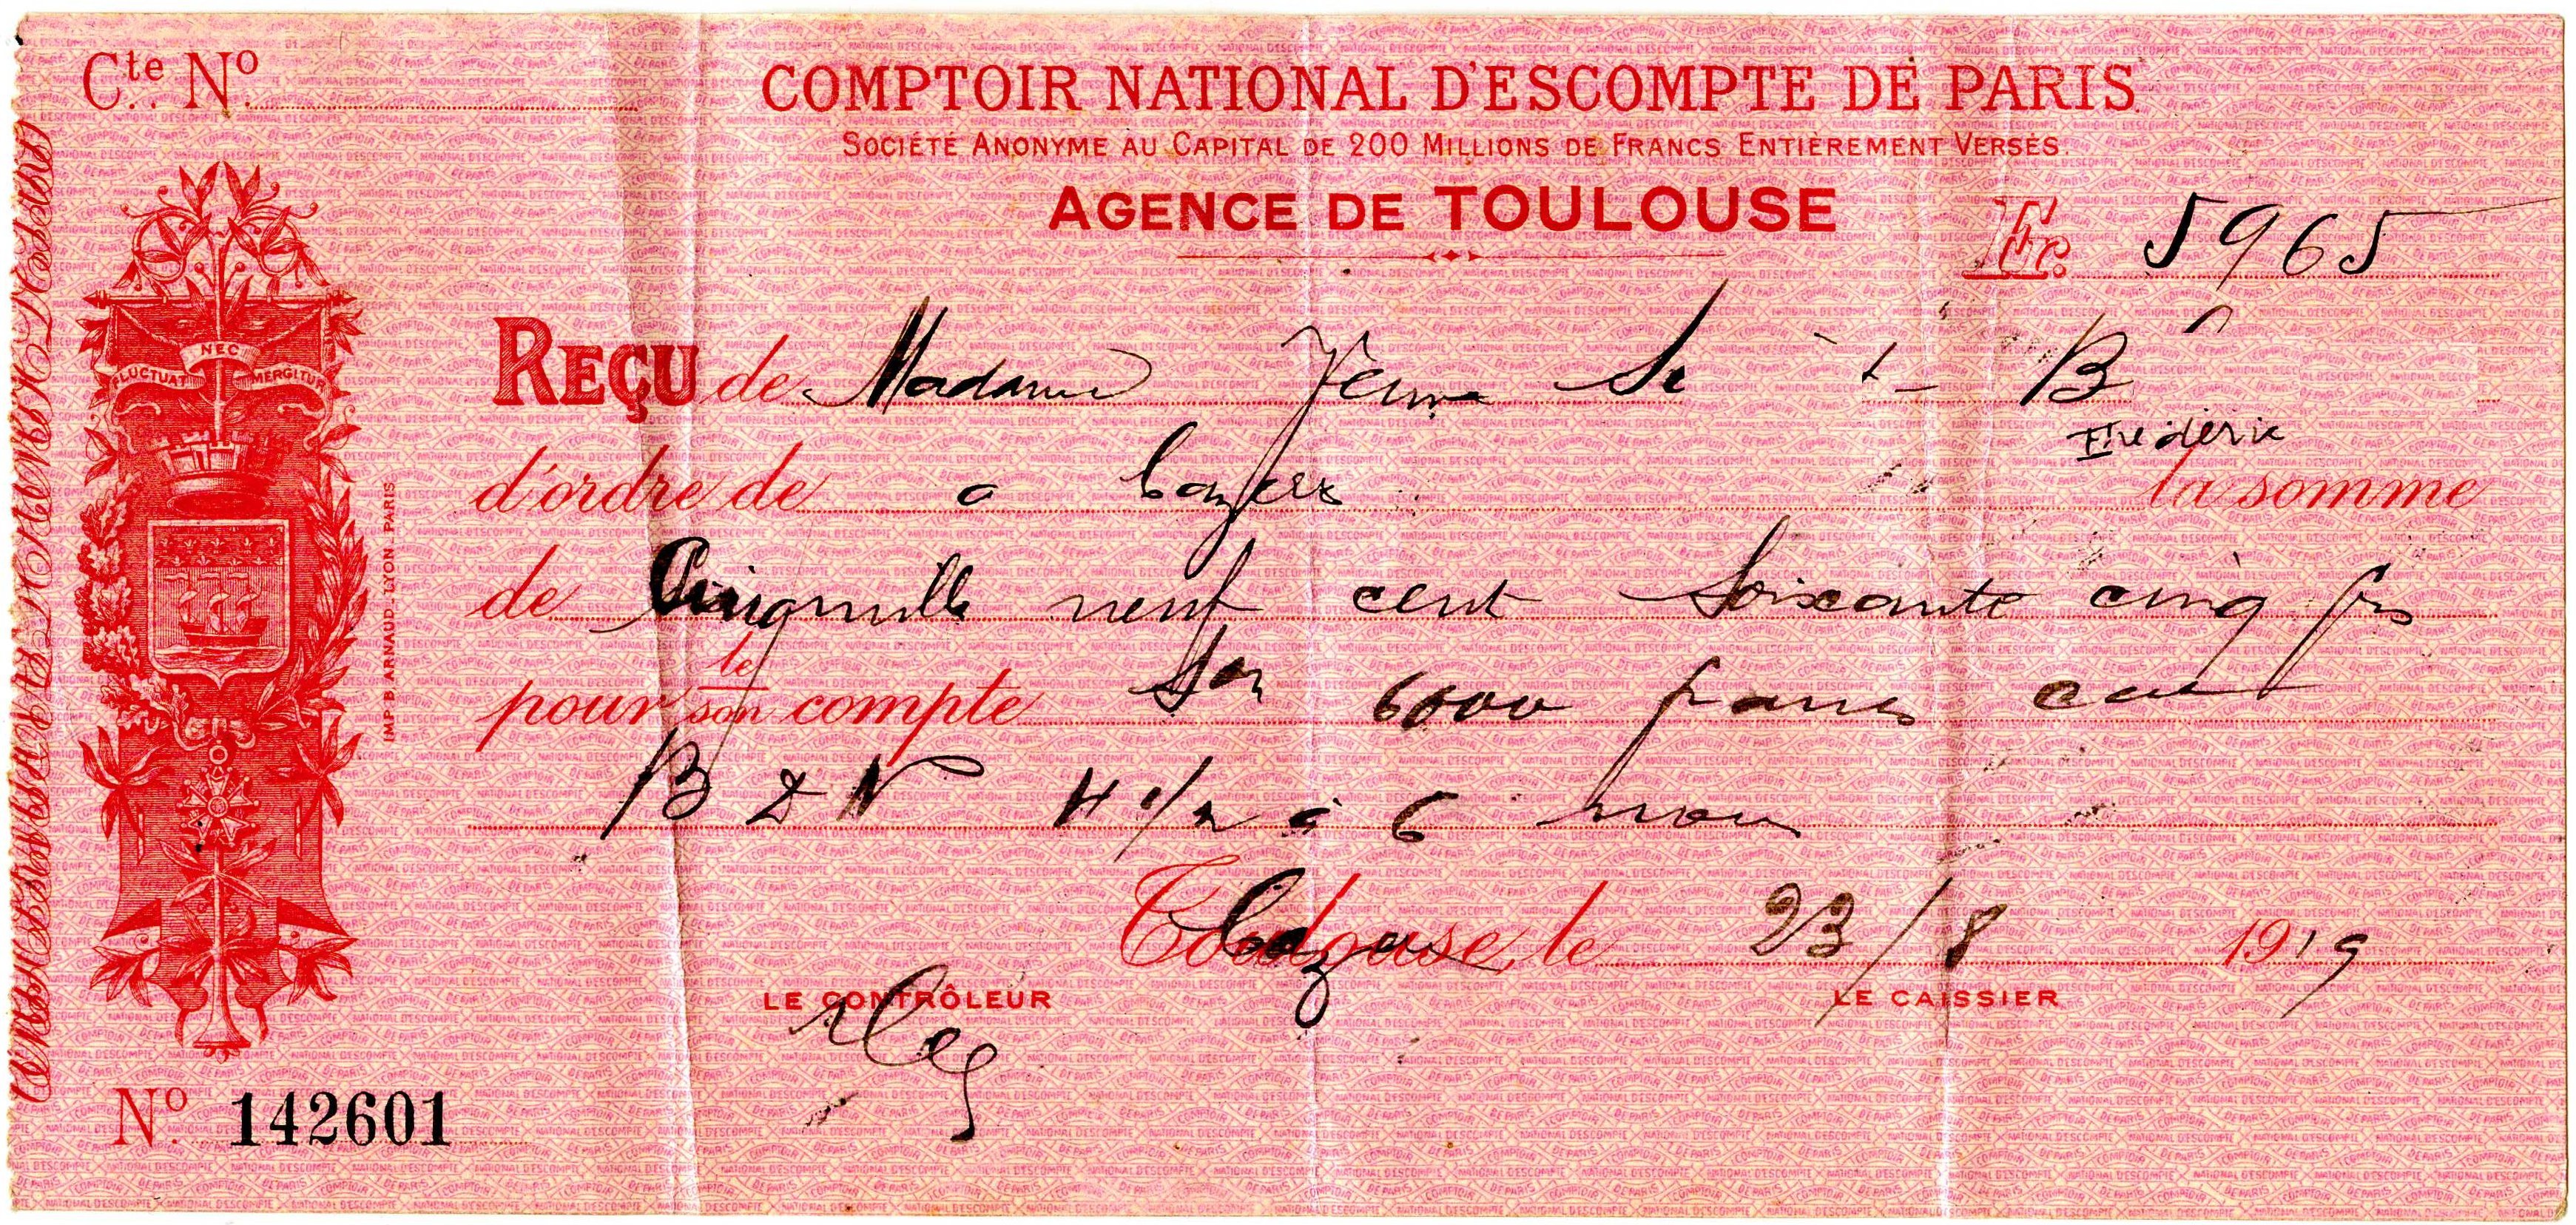 Cte No
COMPTOIR NATIONAL D'ESCOMPTE DE PARIS
SOCIÉTÉ ANONYME AU CAPITAL DE 200 MILLIONS DE FRANCS ENTIÈREMENT VERSÉS.
AGENCE DE TOULOUSE
Fr. 5965
NEC
FLUCTUAT MERGITUR
REÇU de Madame B
Frédéric
d'ordre de a Cazères la somme
de Cinq mille neuf cent Soixante cinq frs
le
pour son compte Son 6000 francs
B D N 4 1/2 à 6 mois
Toulouse, le 23/8 1919
LE CONTRÔLEUR
LE CAISSIER
IMP. B. ARNAUD. LYON. PARIS
No 142601